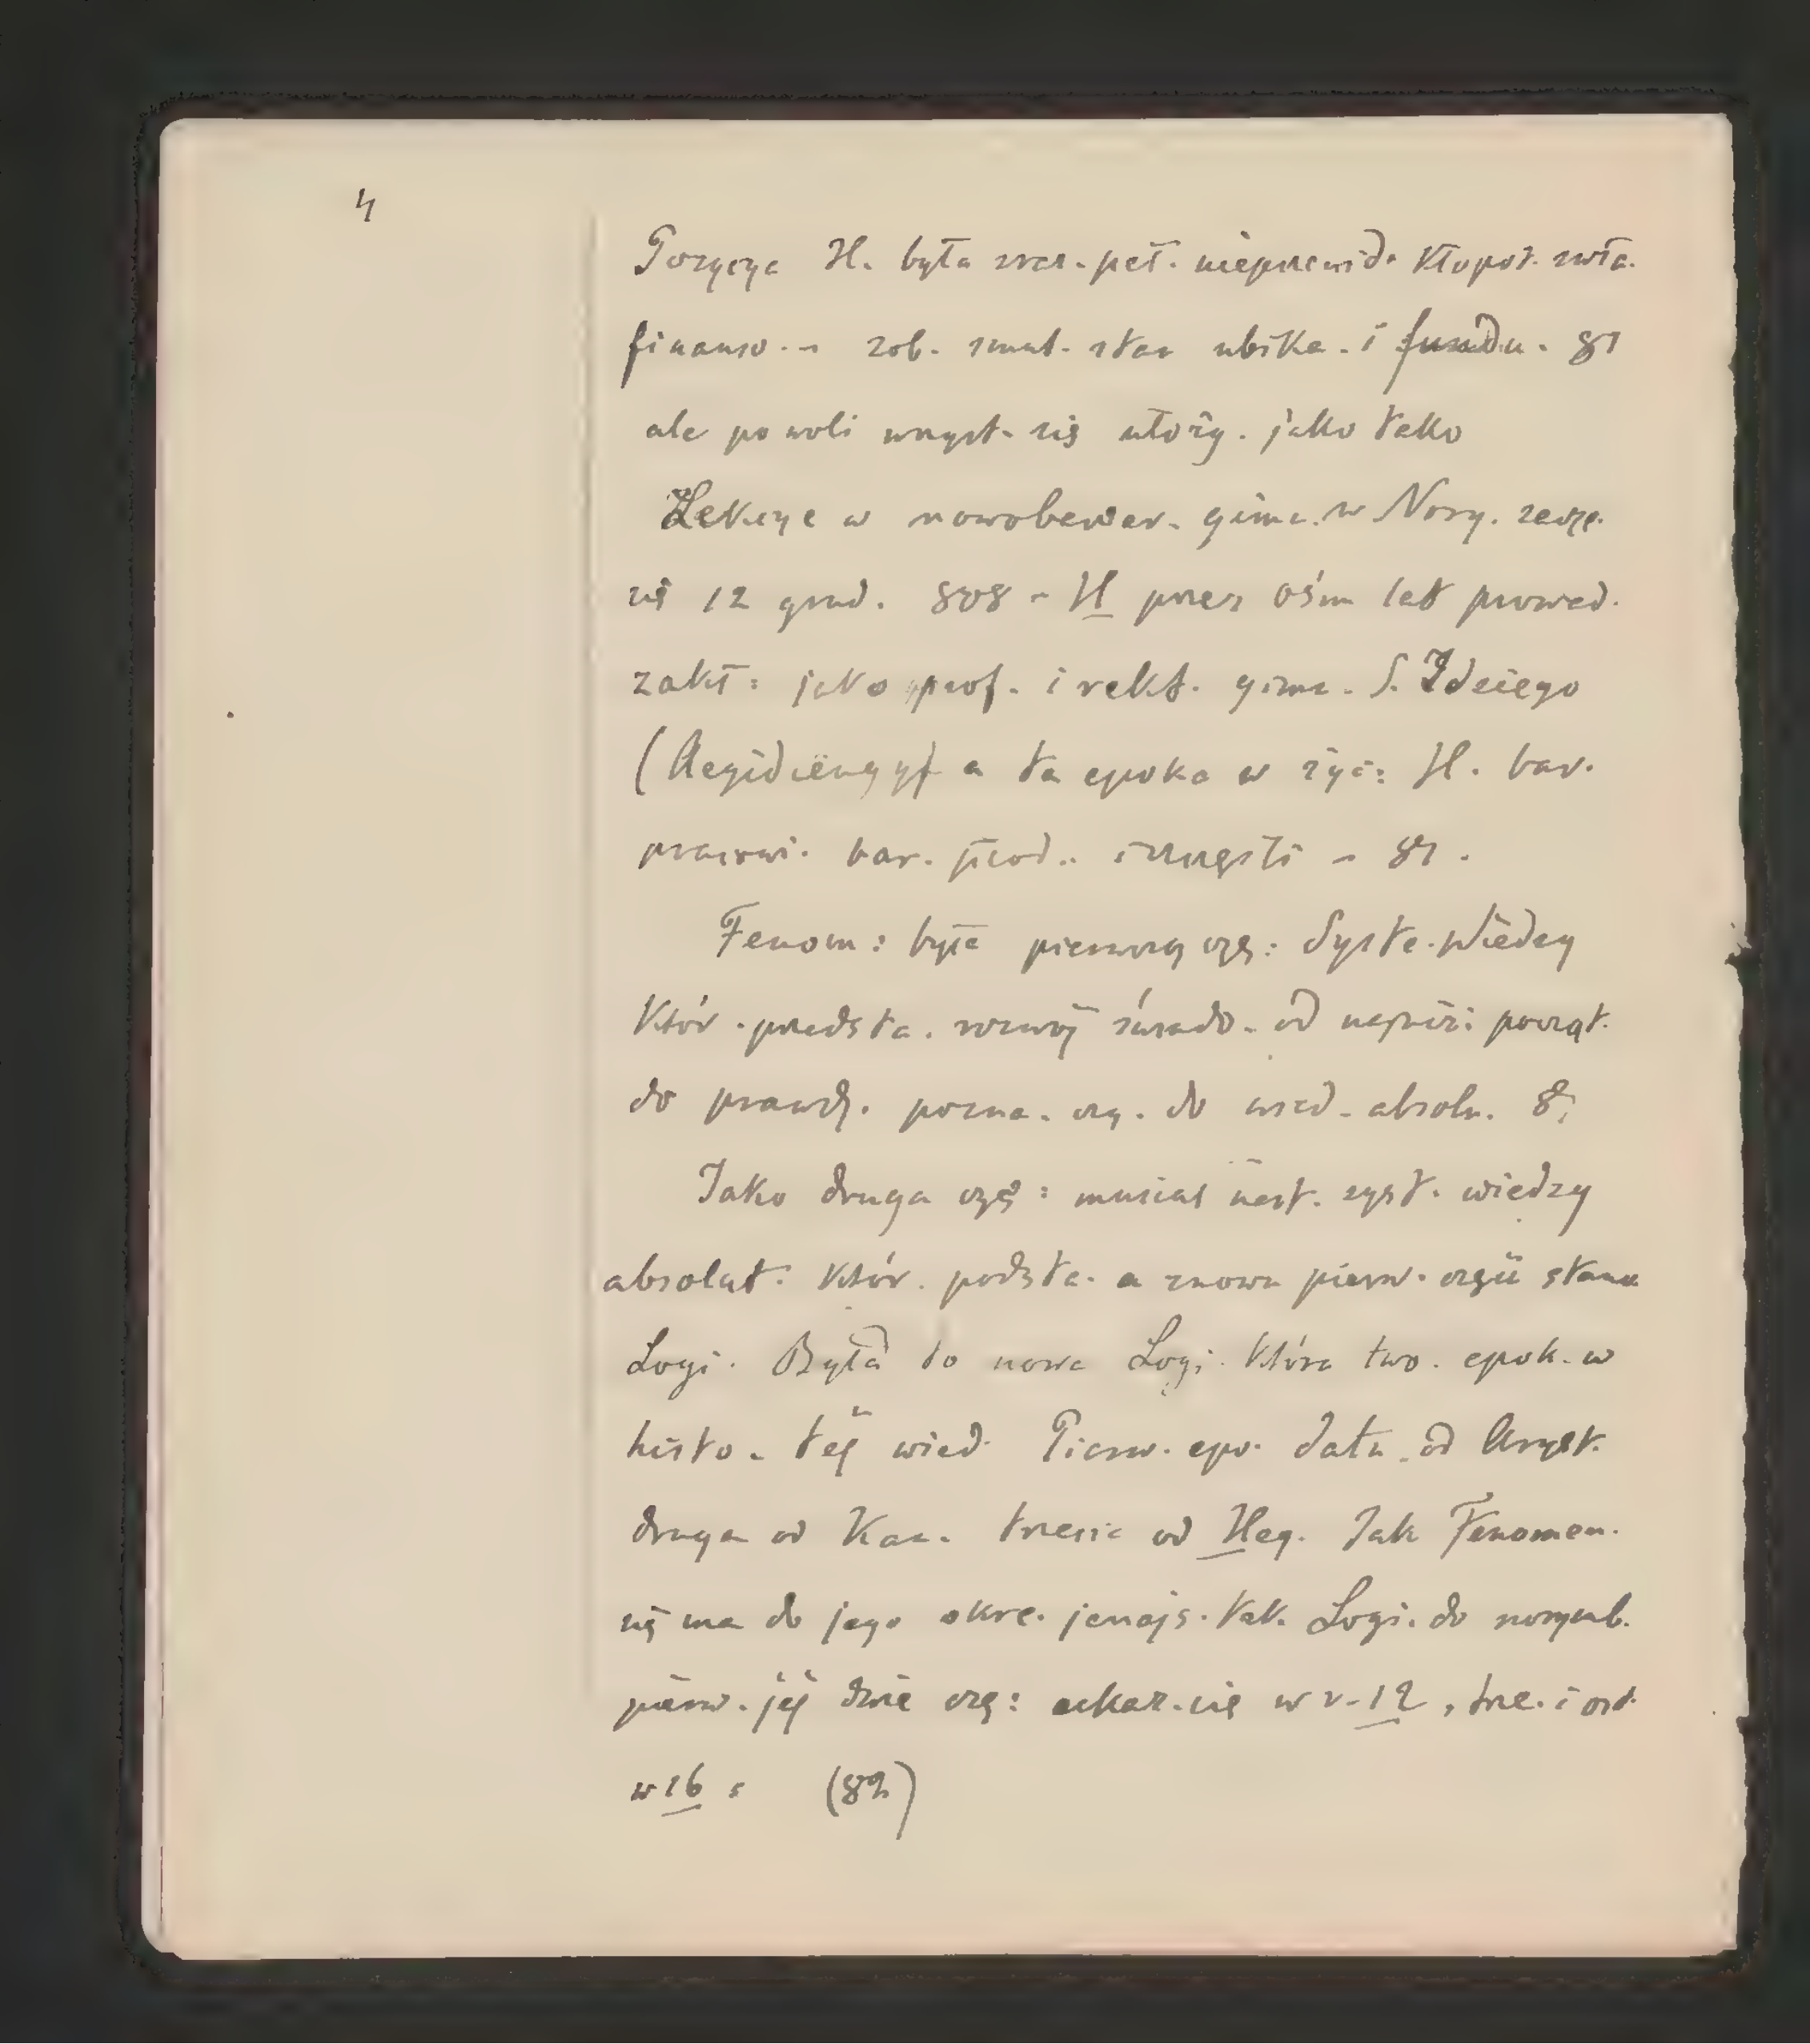 4
Pozycya H. była zraz. peł. nieprzewid. kłopot. zwła.
finanso. - zob. smut. stan ubika. i fundu. 81
ale powoli wszyst. się ułoży. jako tako
Lekcye w nowobawar. gimn. w Nory. zaczę.
się 12 grud. 808 - H przez ośm lat prowad.
zakł: jako prof. i rekt. gimn. S. Idziego
(Aegidiengy) a ta epoka w życ: H. bar.
pracowi. bar. płod. i - 81.
Fenom: była pierwszą czę: Syste. Wiedzy
któr. przedsta. rozwój świado. od najniż: począt.
do prawdz. pozna. czy. do wied. absolu. 8
Jako druga częś: musiał nast. syst. wiedzy
absolut: któr. podsta. a znowu pierw. częśi stanu
Logi. Była to nowa Logi. która two. epok. w
histo. téj wied. Pierw. epo. datu. od Aryst.
druga od Kan. trzecia od Heg. Jak Fenomen.
się ma do jego okre. jenajs. tak. Logi. do norymb.
pierw. jéj dwie czę: ukaz. się w r. 12, trze. i ost.
w 16: (82)